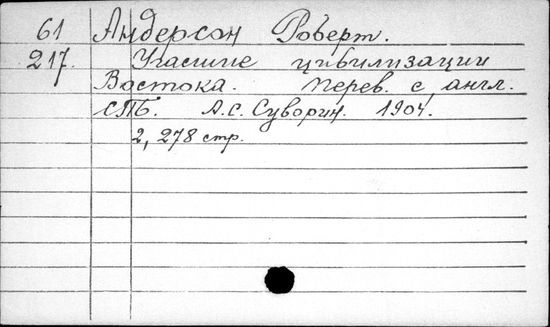 61 Андерсон Роберт.
217. Угасшие цивилизации
Востока. Перев. с англ.
СПБ. А.С. Суворин. 1904.
2, 278 стр.